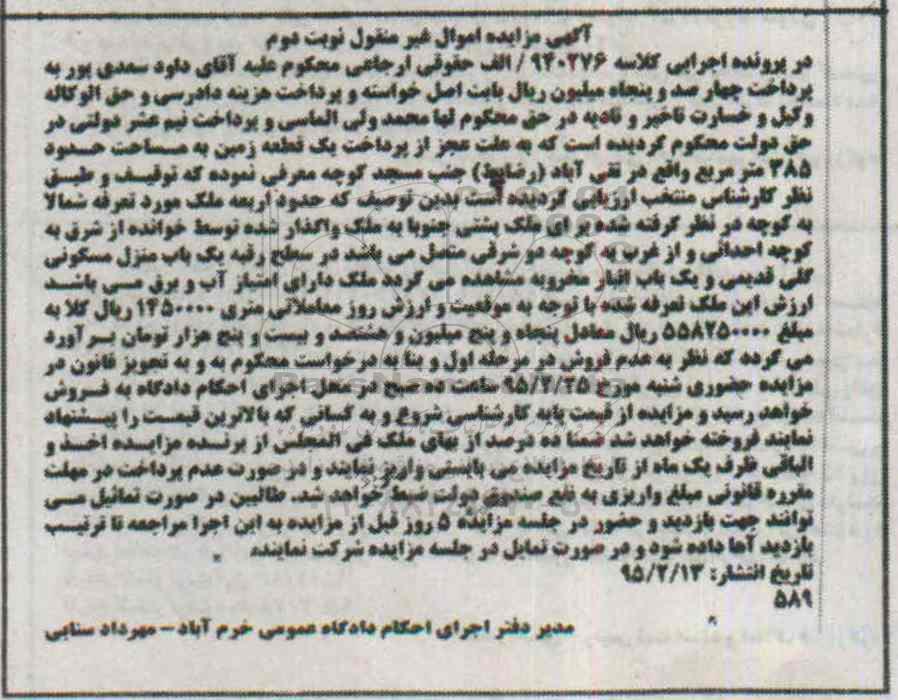 آگهی مزایده اموال غیر منقول نوبت دوم
در پرونده اجرایی کلاسه ۹۴۰۲۷۶ / الف حقوقی ارجاعی محکوم علیه آقای داود سعدی پور به
پرداخت چهار صد و پنجاه میلیون ریال بابت اصل خواسته و پرداخت هزینه دادرسی و حق الوکاله
وکیل و خسارت تاخیر و تادیه در حق محکوم لها محمد ولی الماسی و پرداخت نیم عشر دولتی در
حق دولت محکوم گردیده است که به علت عجز از پرداخت یک قطعه زمین به مساحت حدود
۳۸۵ متر مربع واقع در تقی آباد (رضاییه) جنب مسجد کوچه معرفی نموده که توقیف و طبق
نظر کارشناس منتخب ارزیابی گردیده است بدین توصیف که حدود اربعه ملک مورد تعرفه شمالا
به کوچه در نظر گرفته شده برای ملک پشتی جنوبا به ملک واگذار شده توسط خوانده از شرق به
کوچه احداثی و از غرب به کوچه دو شرقی متصل می باشد در سطح رقبه یک باب منزل مسکونی
گلی قدیمی و یک باب انبار مخروبه مشاهده می گردد ملک دارای امتیاز آب و برق می باشد
ارزش این ملک تعرفه شده با توجه به موقعیت و ارزش روز معاملاتی متری ۱۴۵۰۰۰۰ ریال کلا به
مبلغ ۵۵۸۲۵۰۰۰۰ ریال معادل پنجاه و پنج میلیون و هشتصد و بیست و پنج هزار تومان برآورد
می گردد که نظر به عدم فروش در مرحله اول و بنا به درخواست محکوم به و به تجویز قانون در
مزایده حضوری شنبه مورخ ۹۵/۲/۲۵ ساعت ده صبح در محل اجرای احکام دادگاه به فروش
خواهد رسید و مزایده از قیمت پایه کارشناسی شروع و به کسانی که بالاترین قیمت را پیشنهاد
نمایند فروخته خواهد شد ضمنا ده درصد از بهای ملک فی المجلس از برنده مزایده اخذ و
الباقی ظرف یک ماه از تاریخ مزایده می بایستی واریز نمایند و در صورت عدم پرداخت در مهلت
مقرره قانونی مبلغ واریزی به نفع صندوق دولت ضبط خواهد شد. طالبین در صورت تمائیل می
توانند جهت بازدید و حضور در جلسه مزایده ۵ روز قبل از مزایده به این اجرا مراجعه تا ترتیب
بازدید آها داده شود و در صورت تمایل در جلسه مزایده شرکت نمایند.
تاریخ انتشار: ۹۵/۲/۱۳
۵۸۹
مدیر دفتر اجرای احکام دادگاه عمومی خرم آباد – مهرداد سنایی